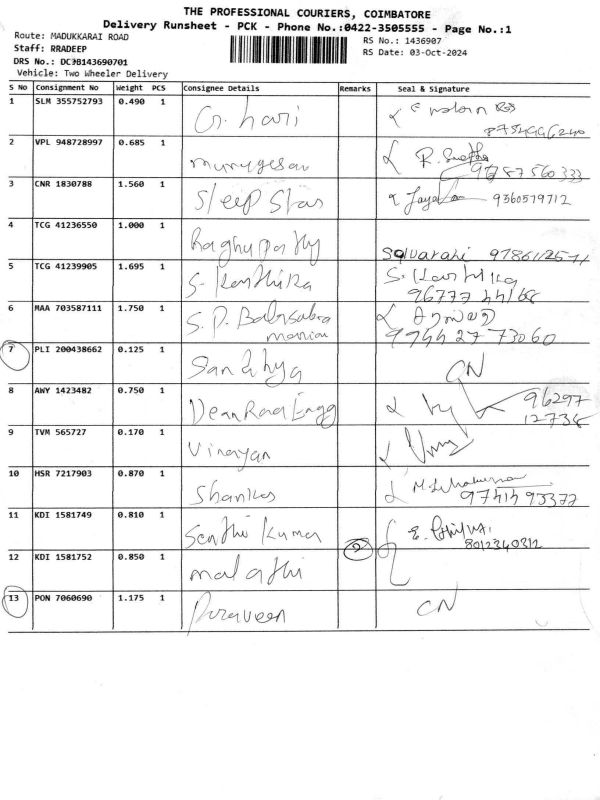 THE PROFESSIONAL COURIERS, COIMBATORE
Delivery Runsheet - PCK - Phone No.:0422-3505555 - Page No.:1
Route: MADUKKARAI ROAD
RS No.: 1436907
Staff: RRADEEP
RS Date: 03-Oct-2024
DRS No.: DC3B143690701
Vehicle: Two Wheeler Delivery
S No Consignment No Weight PCS Consignee Details Remarks Seal & Signature
1 SLM 355752793 0.490 1 G. hari
2 VPL 948728997 0.685 1 murugesan
9787560333
3 CNR 1830788 1.560 1 Sleep Star 9360579712
4 TCG 41236550 1.000 1 Raghupathy
5 TCG 41239905 1.695 1 S. Karthika S. Karthika
96777 44168
6 MAA 703587111 1.750 1 S. P. Balasubra
manian
97442773060
7 PLI 200438662 0.125 1 Sandhya CN
8 AWY 1423482 0.750 1 96297
12738
9 TVM 565727 0.170 1 Vinayan
10 HSR 7217903 0.870 1 Shankar
9741493377
11 KDI 1581749 0.810 1 Senthil Kumar
2 8012340312
12 KDI 1581752 0.850 1 malathi
13 PON 7060690 1.175 1 Praveen CN